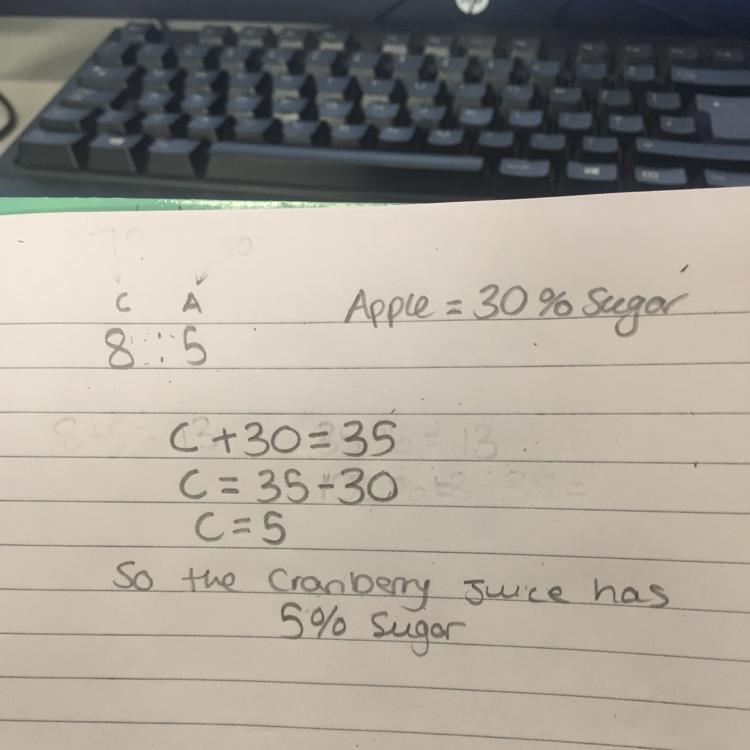 C A
8 : 5
Apple = 30% Sugar
C + 30 = 35
C = 35 - 30
C = 5
So the Cranberry Juice has
5% Sugar